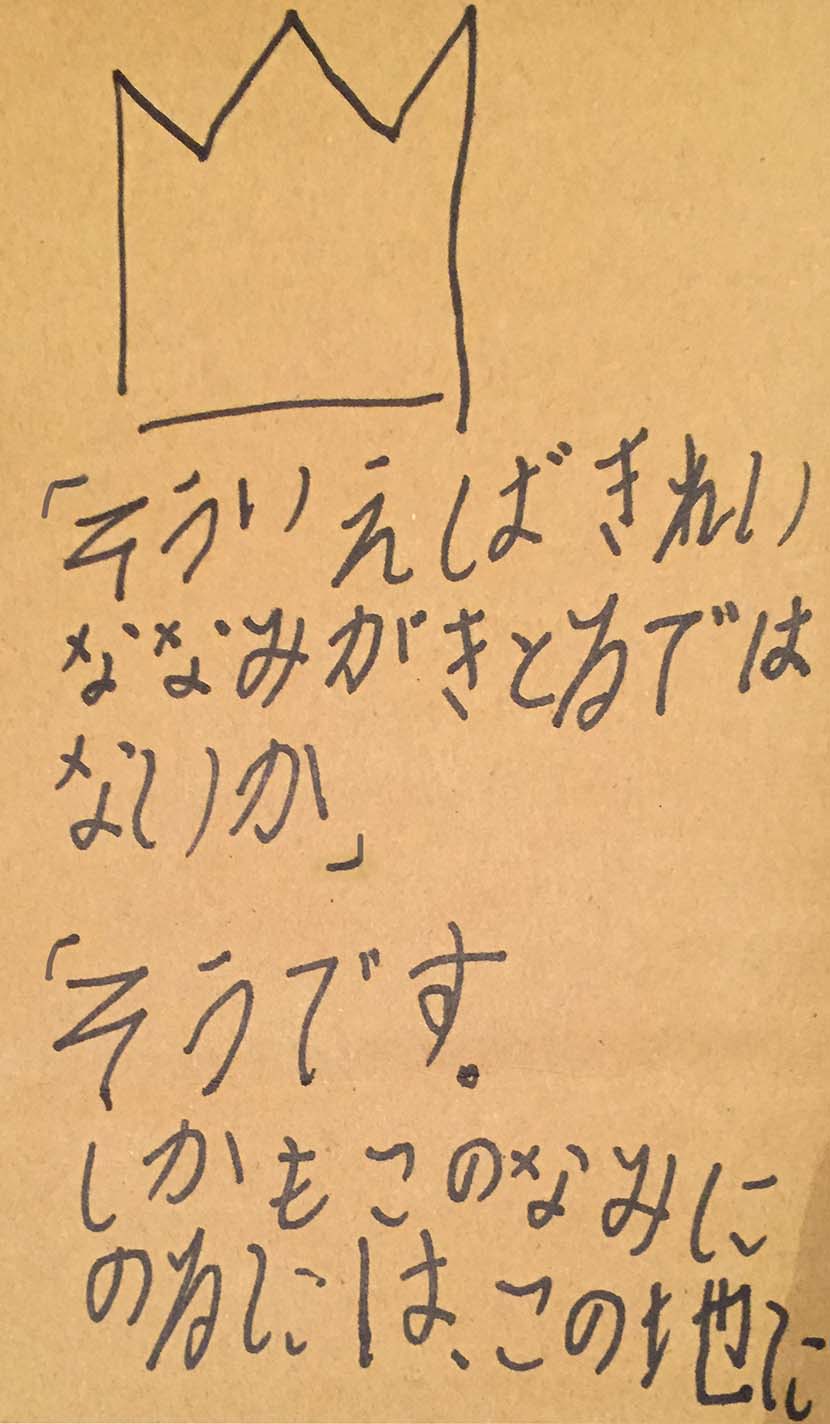 「そういえばきれい
ななみがきとるでは
ないか」
「そうです。
しかもこのなみに
のるには、この地に